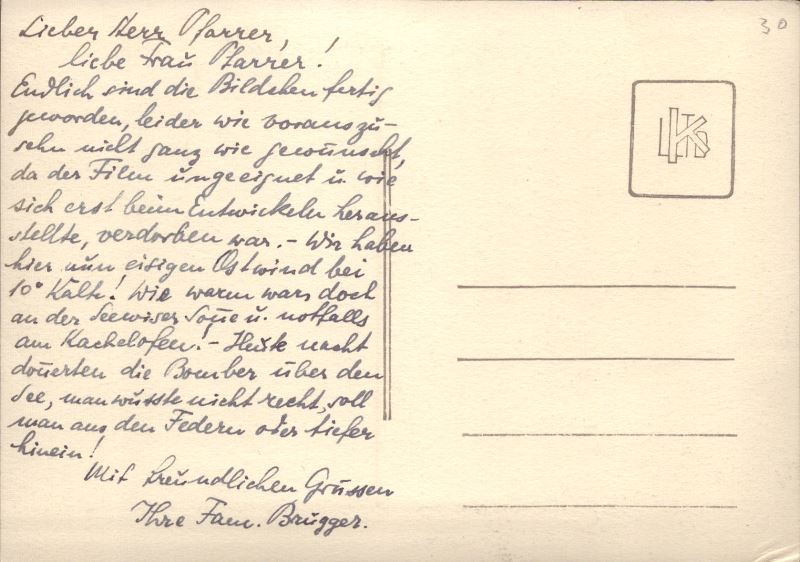 Lieber Herr Pfarrer,
liebe Frau Pfarrer!
Endlich sind die Bildchen fertig
geworden, leider wie vorauszu-
sehn nicht ganz wie gewünscht,
da der Film ungeeignet u. wie
sich erst beim Entwickeln heraus-
stellte, verdorben war. – Wir haben
hier nun eisigen Ostwind bei
10° Kälte! Wie warm wars doch
an der Seewiser Soñe u. notfalls
am Kachelofen! – Heute nacht
donnerten die Bomber über den
See, man wusste nicht recht, soll
man aus den Federn oder tiefer
hinein!
Mit freundlichen Grüssen
Ihre Fam. Brugger.
30